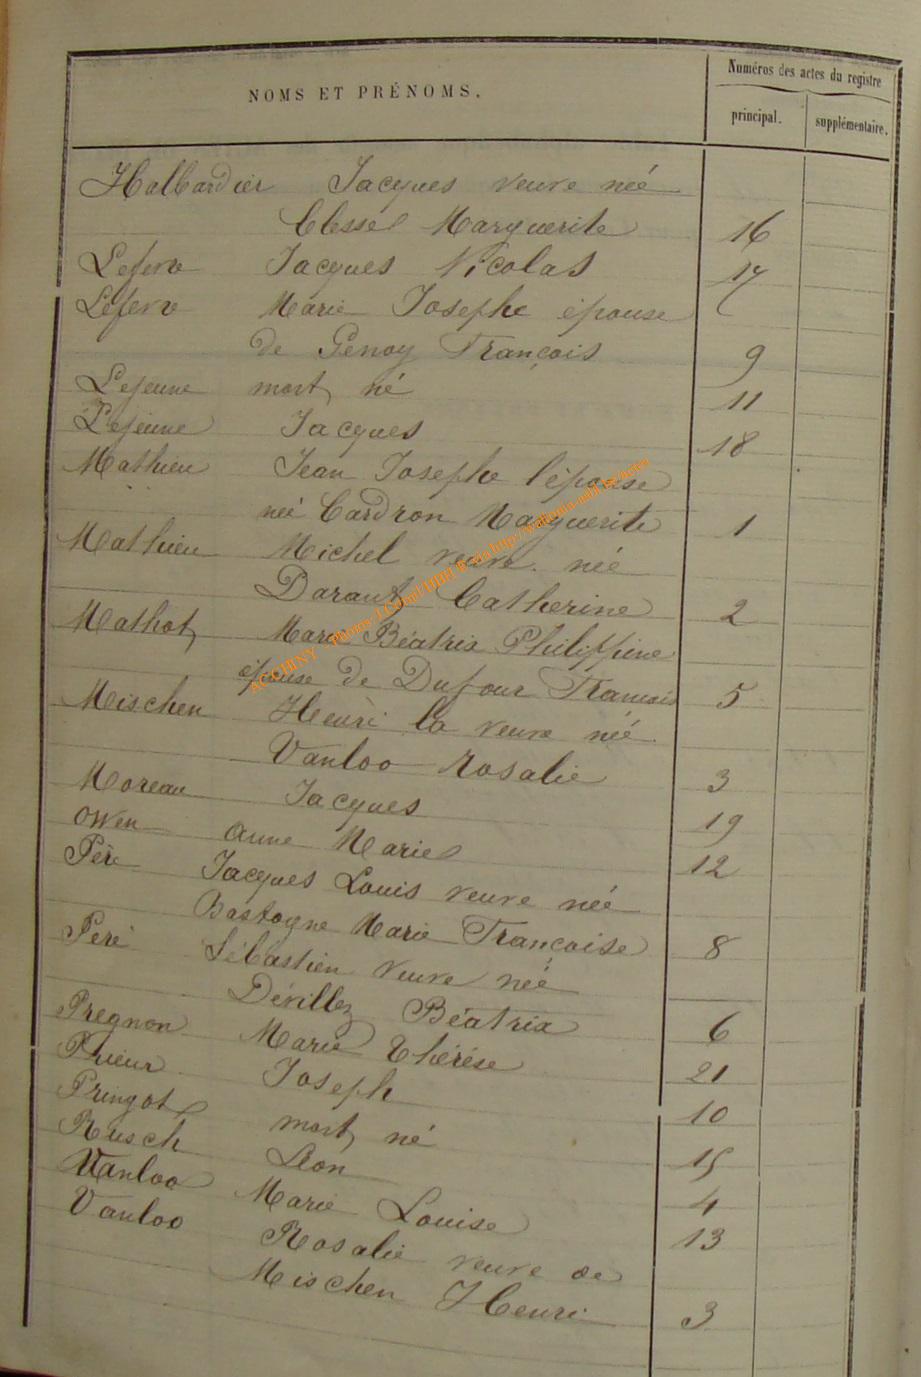 NOMS ET PRÉNOMS.
Numéros des actes du registre
principal.
supplémentaire.
Halbardier Jacques veuve née
Clesse Marguerite 16
Lefevre Jacques Nicolas 17
Lefevre Marie Josephe épouse
de Genoy François 9
Lejeune mort né 11
Lejeune Jacques 18
Mathieu Jean Josephe l'épouse
née Cardron Marguerite 1
Mathieu Michel veuve née
Catherine 2
Mathot Marie Béatrix Philippine
épouse de Dufour François 5
Mischen Henri la veuve née
Vanloo Rosalie 3
Moreau Jacques 19
Owen Anne Marie 12
Péré Jacques Louis veuve née
Bastogne Marie Françoise 8
Péré Sébastien veuve née
Dévillez Béatrix 6
Pregnon Marie Thérèse 21
Prieur Joseph 10
Pringot mort né 15
Rusch Léon 4
Vanloo Marie Louise 13
Vanloo Rosalie veuve de
Mischen Henri 3